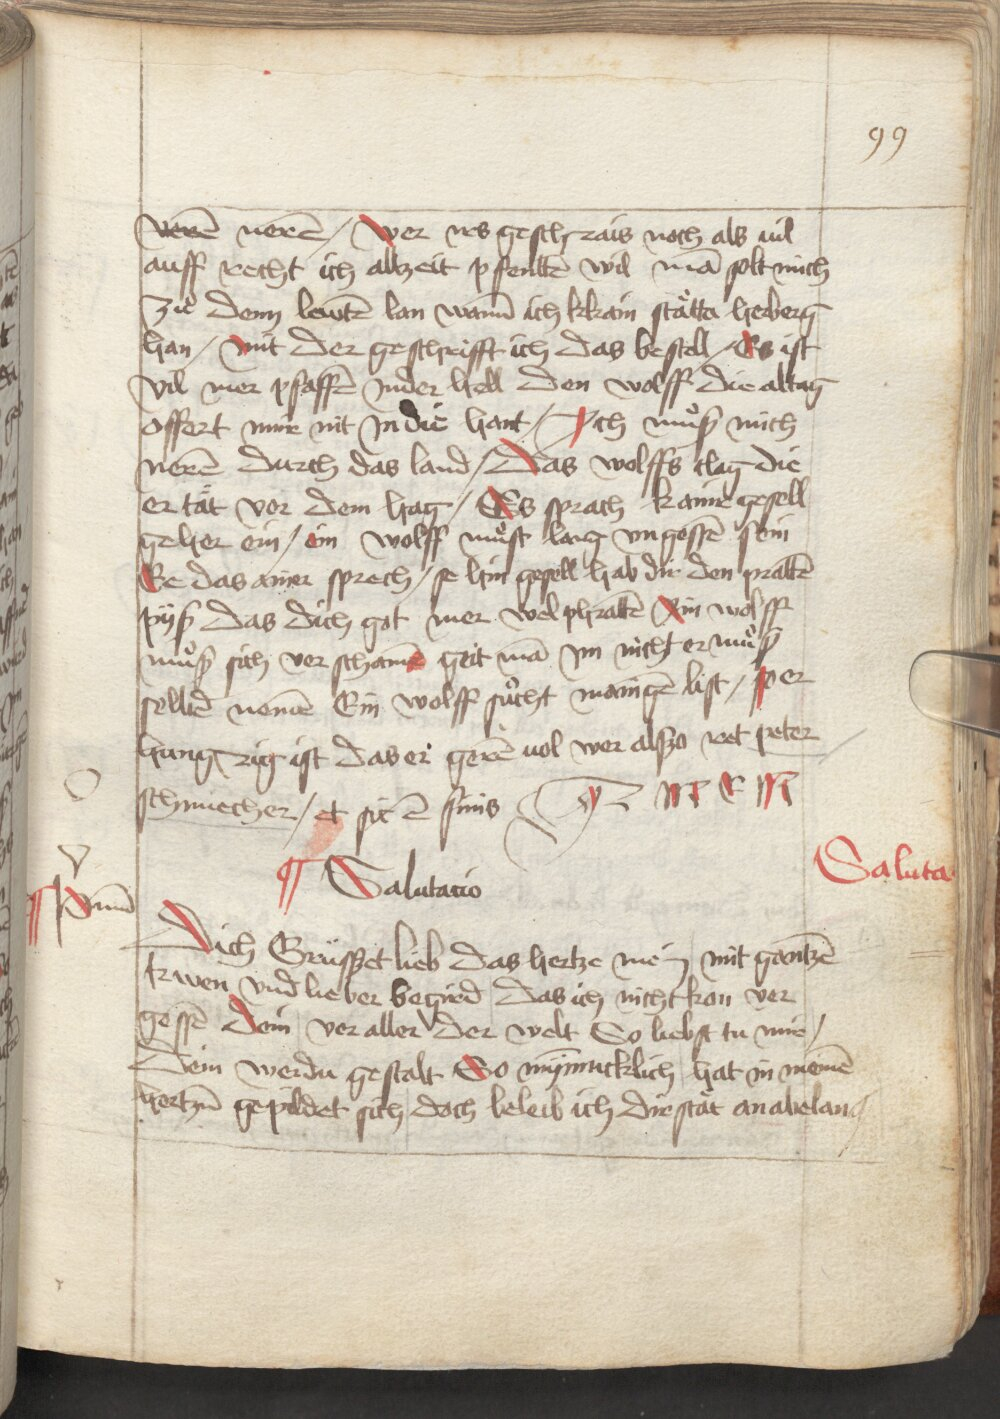 99
neren̄ neren̄ / Wer irs geschrais noch als uil
auff recht ich allzeit pfenlt̄e wil mā solt mich
Zů denn lewtē lan wann̄ ich kkain stätte herberg
han / mit der geschrifft ich das bestell / Es ist
vil mer pfaffē Inder hell den wolff die alltag
offert mir nit In die hant / Ich můß mich
nerē durch das land / Das wolffs clag die
er tät vor dem hag / Es sprach kainr gesell
geher ein / ein wolff můst lang vngessē sein
Ee das ainer sprech / se hin gesell hab dir den pratē
piß das dich got mer wel phratē Ein wolff
můß sich ver schamē geit mā Im nicht er můß
selbē nemē Ein wolff sůcht maingē list / so er
hungrig ist das er gerē uol wer alszo ret peter
schmiecher / et sic ē finis
¶ Salutacio
Saluta
Dich Grüsszet lieb das hertze mein mit gantzē
trwen vnd lieber begird das ich nicht kan ver
gessē dein vor aller der welt So liebst tu mir /
Dein werdu gestalt So mynnicklich hat in meinē
hertzn̄ gepildet sich doch beleib ich dir stät an abelan